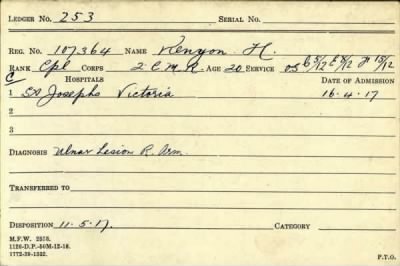 LEDGER NO. 253 SERIAL NO.
REG. NO. 107364 NAME Kenyon H.
RANK Cpl CORPS 2. C.M.R. AGE 20 SERVICE 05 C 5/12 E 8/12 F 15/12
C HOSPITALS DATE OF ADMISSION
1 St Josephs Victoria 16.4.17
2
3
DIAGNOSIS Ulnar Lesion R. Arm.
TRANSFERRED TO
DISPOSITION 11.5.17. CATEGORY
M.F.W. 2558.
1772-39-1322.
P.T.O.